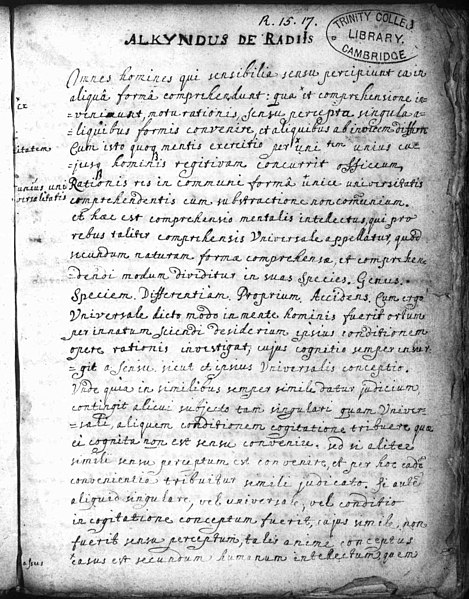 R. 15. 17.
TRINITY COLLE
LIBRARY.
CAMBRIDGE
ALKYNDUS DE RADIIS
Omnes homines qui sensibilia sensu percipiunt ea in
aliquâ formâ comprehendunt: quâ et comprehensione in=
=veniunt, motu rationis, sensu percepta singula a=
=liquibus formis convenire, et aliquibus ab invicem differre
Cum isto quoq mentis exercitio per uni unius cu=
=jusq hominis regitivam concurrit officium
Rationis res in communi formâ unice universitatis
comprehendentis cum substractione non communium.
et haec est comprehensio mentalis intellectus, qui pro
rebus taliter comprehensis Universale appellatur, quod
secundum naturam formae comprehensae, et comprehen=
=dendi modum dividitur in suas Species. Genus.
Speciem. Differentiam. Proprium. Accidens. Cum ergo
Universale dicto modo in mente hominis fuerit ortum
per innatum sciendi desiderium ipsius conditionem
opere rationis investigat, cujus cognitio semper insur=
=git a sensu. sicut et ipsius Universalis conceptio.
Unde quia in similibus semper simile datur judicium
contingit alicui subjecto tam singulari quam Univer=
=sali, aliquem conditionem cogitatione tribuere, quae
ei cognita non est sensu convenire. sed si alitèr
simili sensu perceptum est convenire, et per hoc eadē
convenientia tribuitur simili judicato. Si autē
aliquid singulare, vel universale, vel conditio
in cogitatione conceptum fuerit, cujus simile, non
fuerit sensu perceptum, talis animi conceptus
casus est secundum humanum intellectum, quem
litatem
unius uni
versalitatis
casus